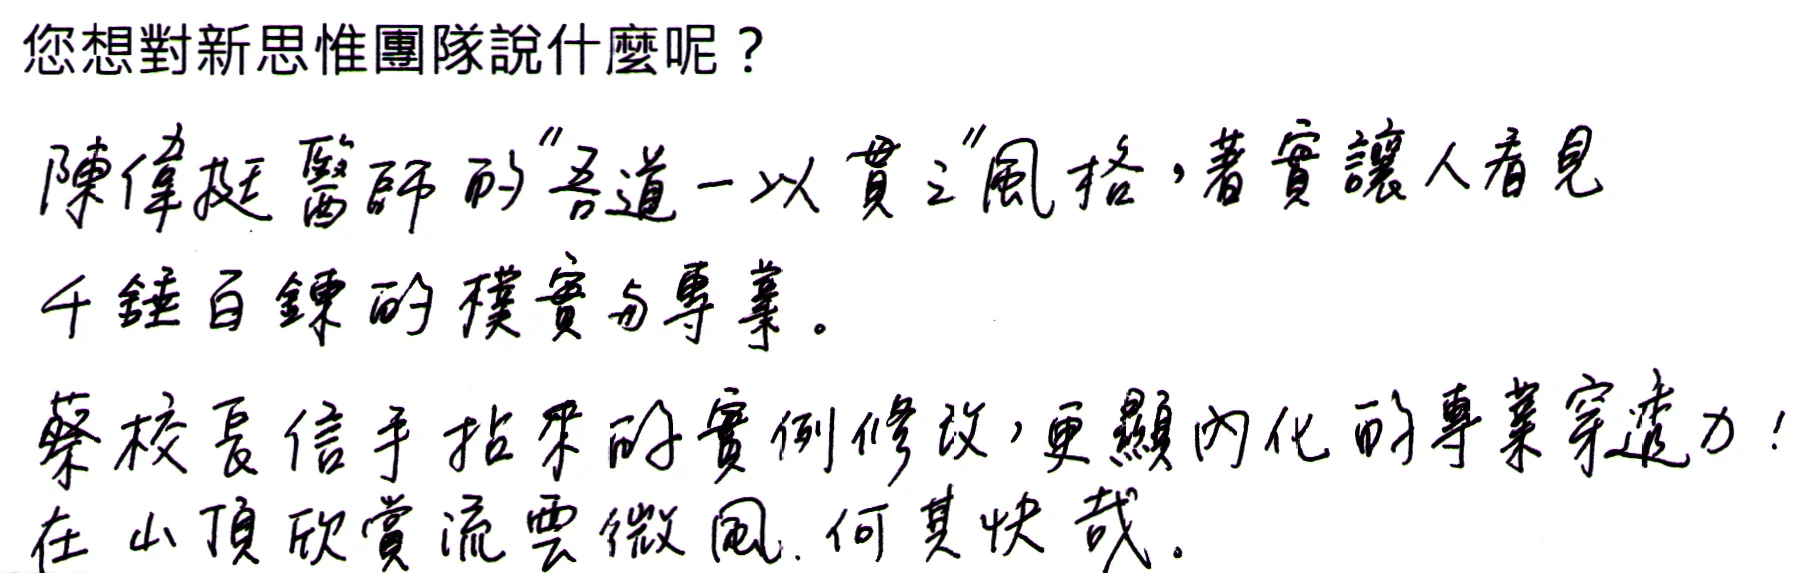 您想對新思惟團隊說什麼呢？
陳偉挺醫師的"吾道一以貫之"風格，著實讓人看見
千錘百鍊的樸實与專業。
蔡校長信手拈來的實例修改，更顯內化的專業穿透力！
在山頂欣賞流雲微風.何其快哉。